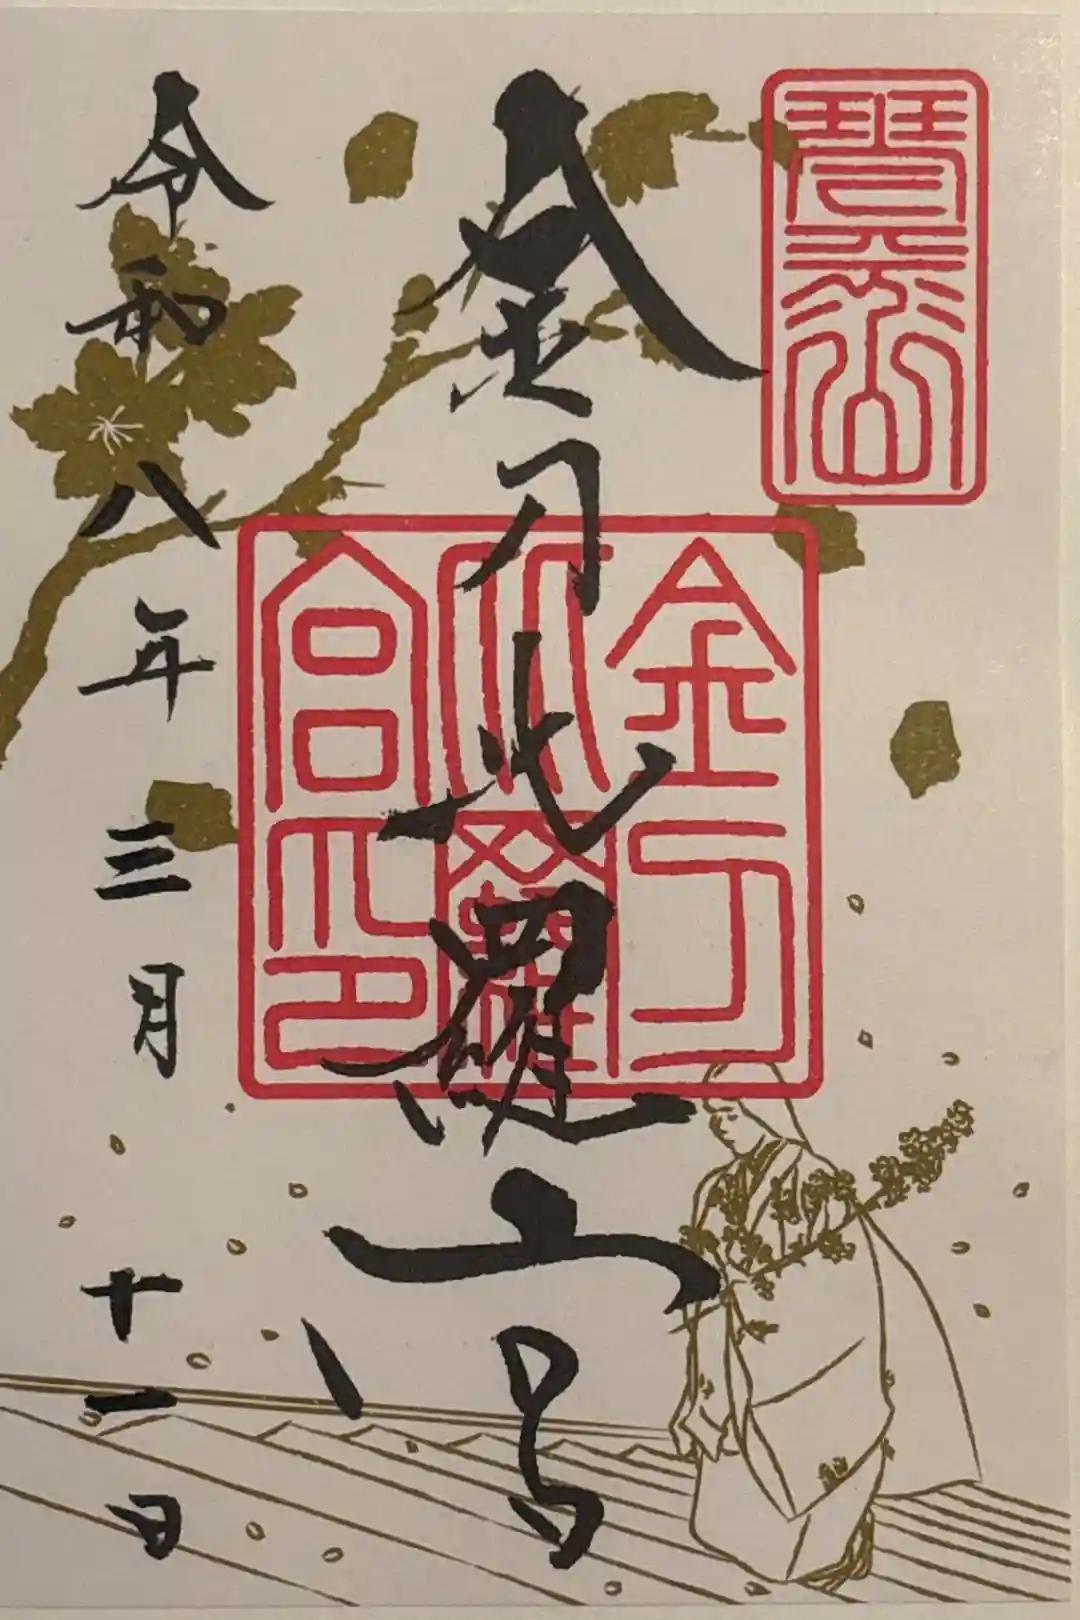 琴平山
金刀比羅宮
金刀
比羅
宮印
令和八年三月十一日